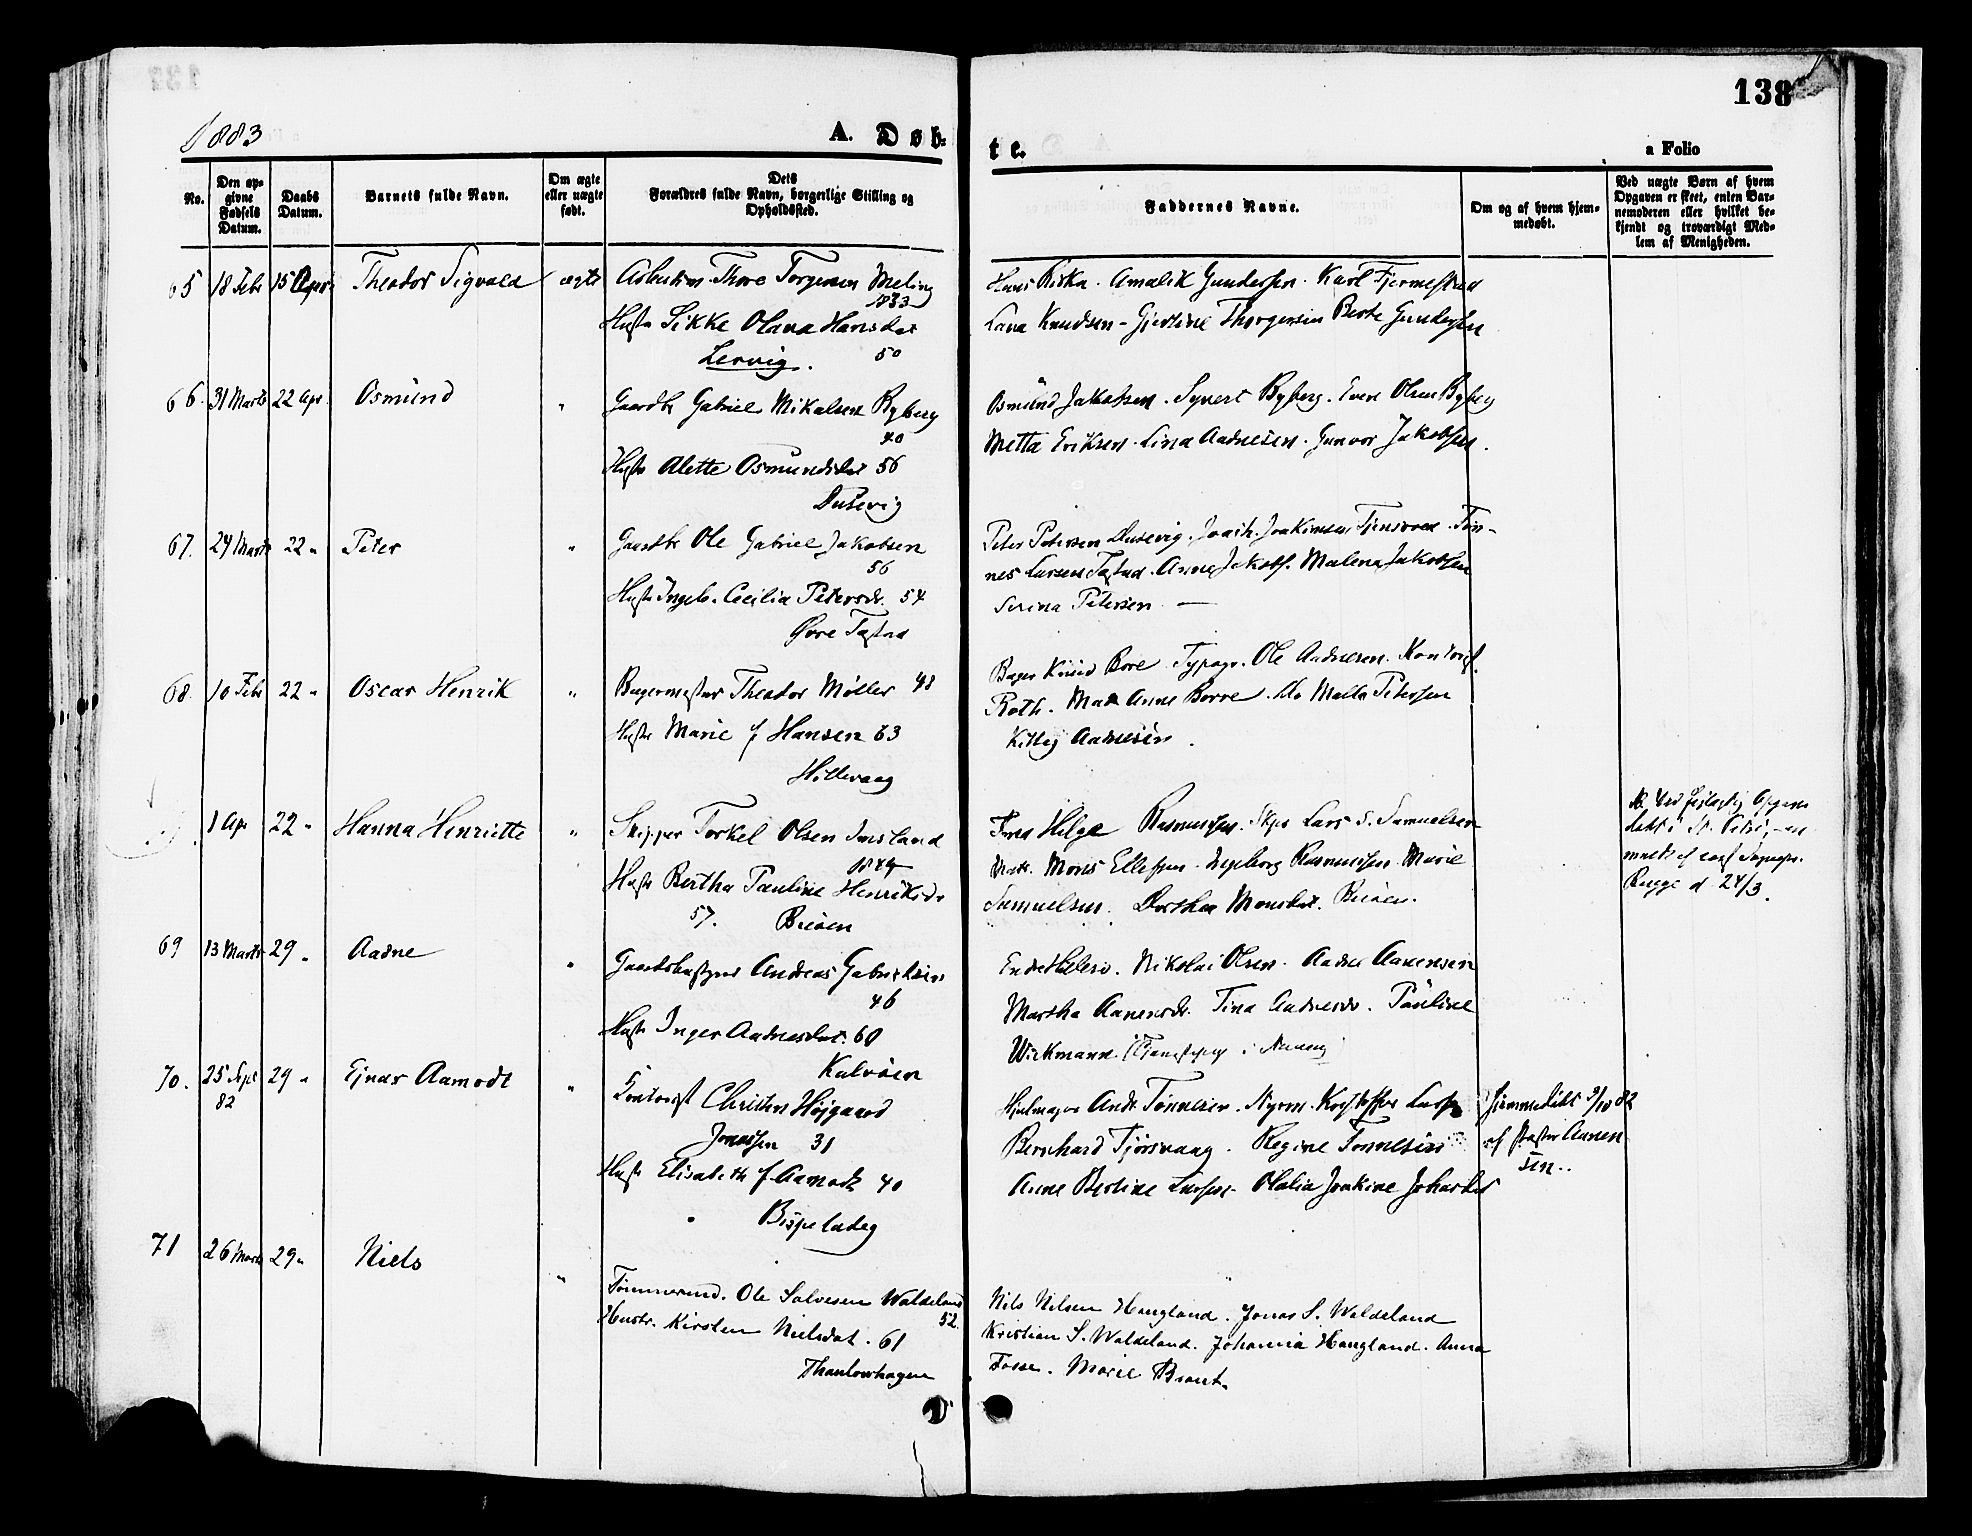 138
1883
A. Døb-
te.
a Folio
No.
Den op-
givne
Fødsels
Datum.
Daabs
Datum.
Barnets fulde Navn.
Om ægte
eller uægte
født.
Dets
Forældres fulde Navn, borgerlige Stilling og
Opholdssted.
Faddernes Navne.
Om og af hvem hjem-
medøbt.
Ved uægte Børn af hvem
Opgaven er skeet, enten Bar-
nemoderen eller hvilket be-
kjendt og troværdigt Med-
lem af Menigheden.
65 18 Febr 15 April Theodor Sigvald ægte Thore Torgersen Meling
1833
Hustr Sikke Olava Hansdat
Lervig. 50
Hans Riska. Amalie Gundersen. Karl Fjermestad
Lava Knudsen - Gjertine Thorgersen Berte Gundersen
66. 31 Marts 22 Apr. Osmund " Gaardbr Gabriel Mikalsen Byberg
40
Hustr Alette Osmundsdat 56
Dusevig
Osmund Jakobsen. Syvert Byberg. Even Olsen Byberg
Metta Eriksen. Lina Aadnesen. Gunvor Jakobsen.
67. 24 Marts 22 " Peter " Gaardbr Ole Gabriel Jakobsen
56
Hustr Ingeb. Cecilia Petersdr. 54
Øvre Tastad
Peter Petersen Dusevig. Joach. Joakimsen Tjensvold. Tøn-
nes Larsen Tastad. Anne Jakobs. Malena Jakobsen
Serina Petersen —
68. 10 Febr 22 " Oscar Henrik " Bagermester Theodor Møller 48
Hustr Marie f Hansen 63
Hillevaag
Bager Knud Bore. Typogr. Ole Aadnesen. Kontorist
Roth. Mad Anne Borre. Do Malla Petersen
Aadnesen.
1 Apr 22 " Hanna Henriette " Skipper Torkel Olsen Imsland
1849
Hustr Bertha Pauline Henriksdr
57. Buøen
Helge Rasmussen. Skpr Lars S. Samuelsen
Matr. Mons Ellefsen. Ingeborg Rasmussen. Marie
Samuelsen. Dorthea Monsdat. Buøen.
NB Ved feilagtig Opgave
døbt i St. Petri, an-
meldt af
Bugge d. 24/3.
69 13 Marts 29 " Aadne " Andreas Gabrielsen
46
Hustr Inger Aadnesdat. 60
Kalvøen
Nikolai Olsen. Aadne Aanensen
Martha Aanensdr. Tina Aadnesdr. Pauline
Wickmann.
70. 25 Sept 29 " Ejnar Aamodt " Kontorist Christen Højgaard
82
Jonassen 31
Hustr Elisabeth f. Aamodt 40
Bispeladeg
Hjulmager Andr. Tønnesen.
Bernhard Tjørsvaag. Regine Tønnesen
Anne Bertine Larsen. Olalia Joakine Johasdat
Hjemmedøbt 3/10 82
af Pastor Aanen
sen..
71 26 Marts 29 " Niels " Tømmermd. Ole Salvesen Waldeland
52.
Hustr. Kirsten Nielsdat. 61
Thaulowhagen
Nils Nilsen Haugland. Jonas S. Waldeland
Kristian S. Waldeland. Johanna Haugland. Anna
Fosse. Marie Braut.